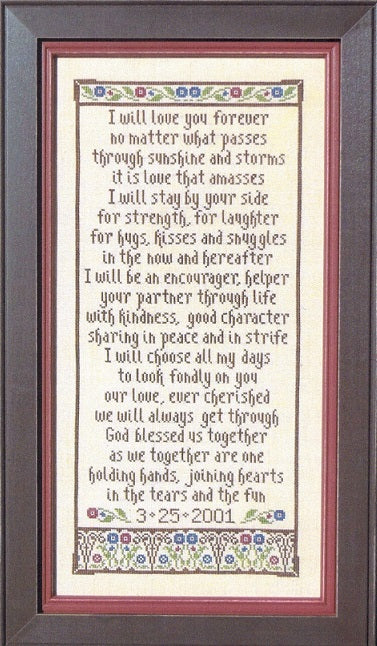 I will love you forever
no matter what passes
through sunshine and storms
it is love that amasses
I will stay by your side
for strength, for laughter
for hugs, kisses and snuggles
in the now and hereafter
I will be an encourager, helper
your partner through life
with kindness, good character
sharing in peace and in strife
I will choose all my days
to look fondly on you
our love, ever cherished
we will always get through
God blessed us together
as we together are one
holding hands, joining hearts
in the tears and the fun
3•25•2001